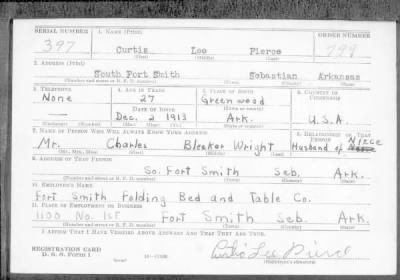 SERIAL NUMBER 1. NAME (Print) ORDER NUMBER
397 Curtis Lee Pierce 799
(First) (Middle) (Last)
2. ADDRESS (Print)
South Fort Smith Sebastian Arkansas
(Number and street or R. F. D. number) (Town) (County) (State)
3. TELEPHONE 4. AGE IN YEARS 5. PLACE OF BIRTH 6. COUNTRY OF CITIZENSHIP
None 27 Greenwood
DATE OF BIRTH (Town or county)
Dec. 2 1913 Ark. U.S.A.
(Exchange) (Number) (Mo.) (Day) (Yr.) (State or country)
7. NAME OF PERSON WHO WILL ALWAYS KNOW YOUR ADDRESS 8. RELATIONSHIP OF THAT PERSON
Mr. Charles Bleaker Wright Husband of NIECE
(Mr., Mrs., Miss) (First) (Middle) (Last)
9. ADDRESS OF THAT PERSON
So. Fort Smith Seb. Ark.
(Number and street or R. F. D. number) (Town) (County) (State)
10. EMPLOYER'S NAME
Fort Smith Folding Bed and Table Co.
11. PLACE OF EMPLOYMENT OR BUSINESS
1100 No. 1st Fort Smith Seb. Ark.
(Number and street or R. F. D. number) (Town) (County) (State)
I AFFIRM THAT I HAVE VERIFIED ABOVE ANSWERS AND THAT THEY ARE TRUE.
REGISTRATION CARD
D. S. S. Form 1 (over) Curtis Lee Pierce
(Registrant's signature)